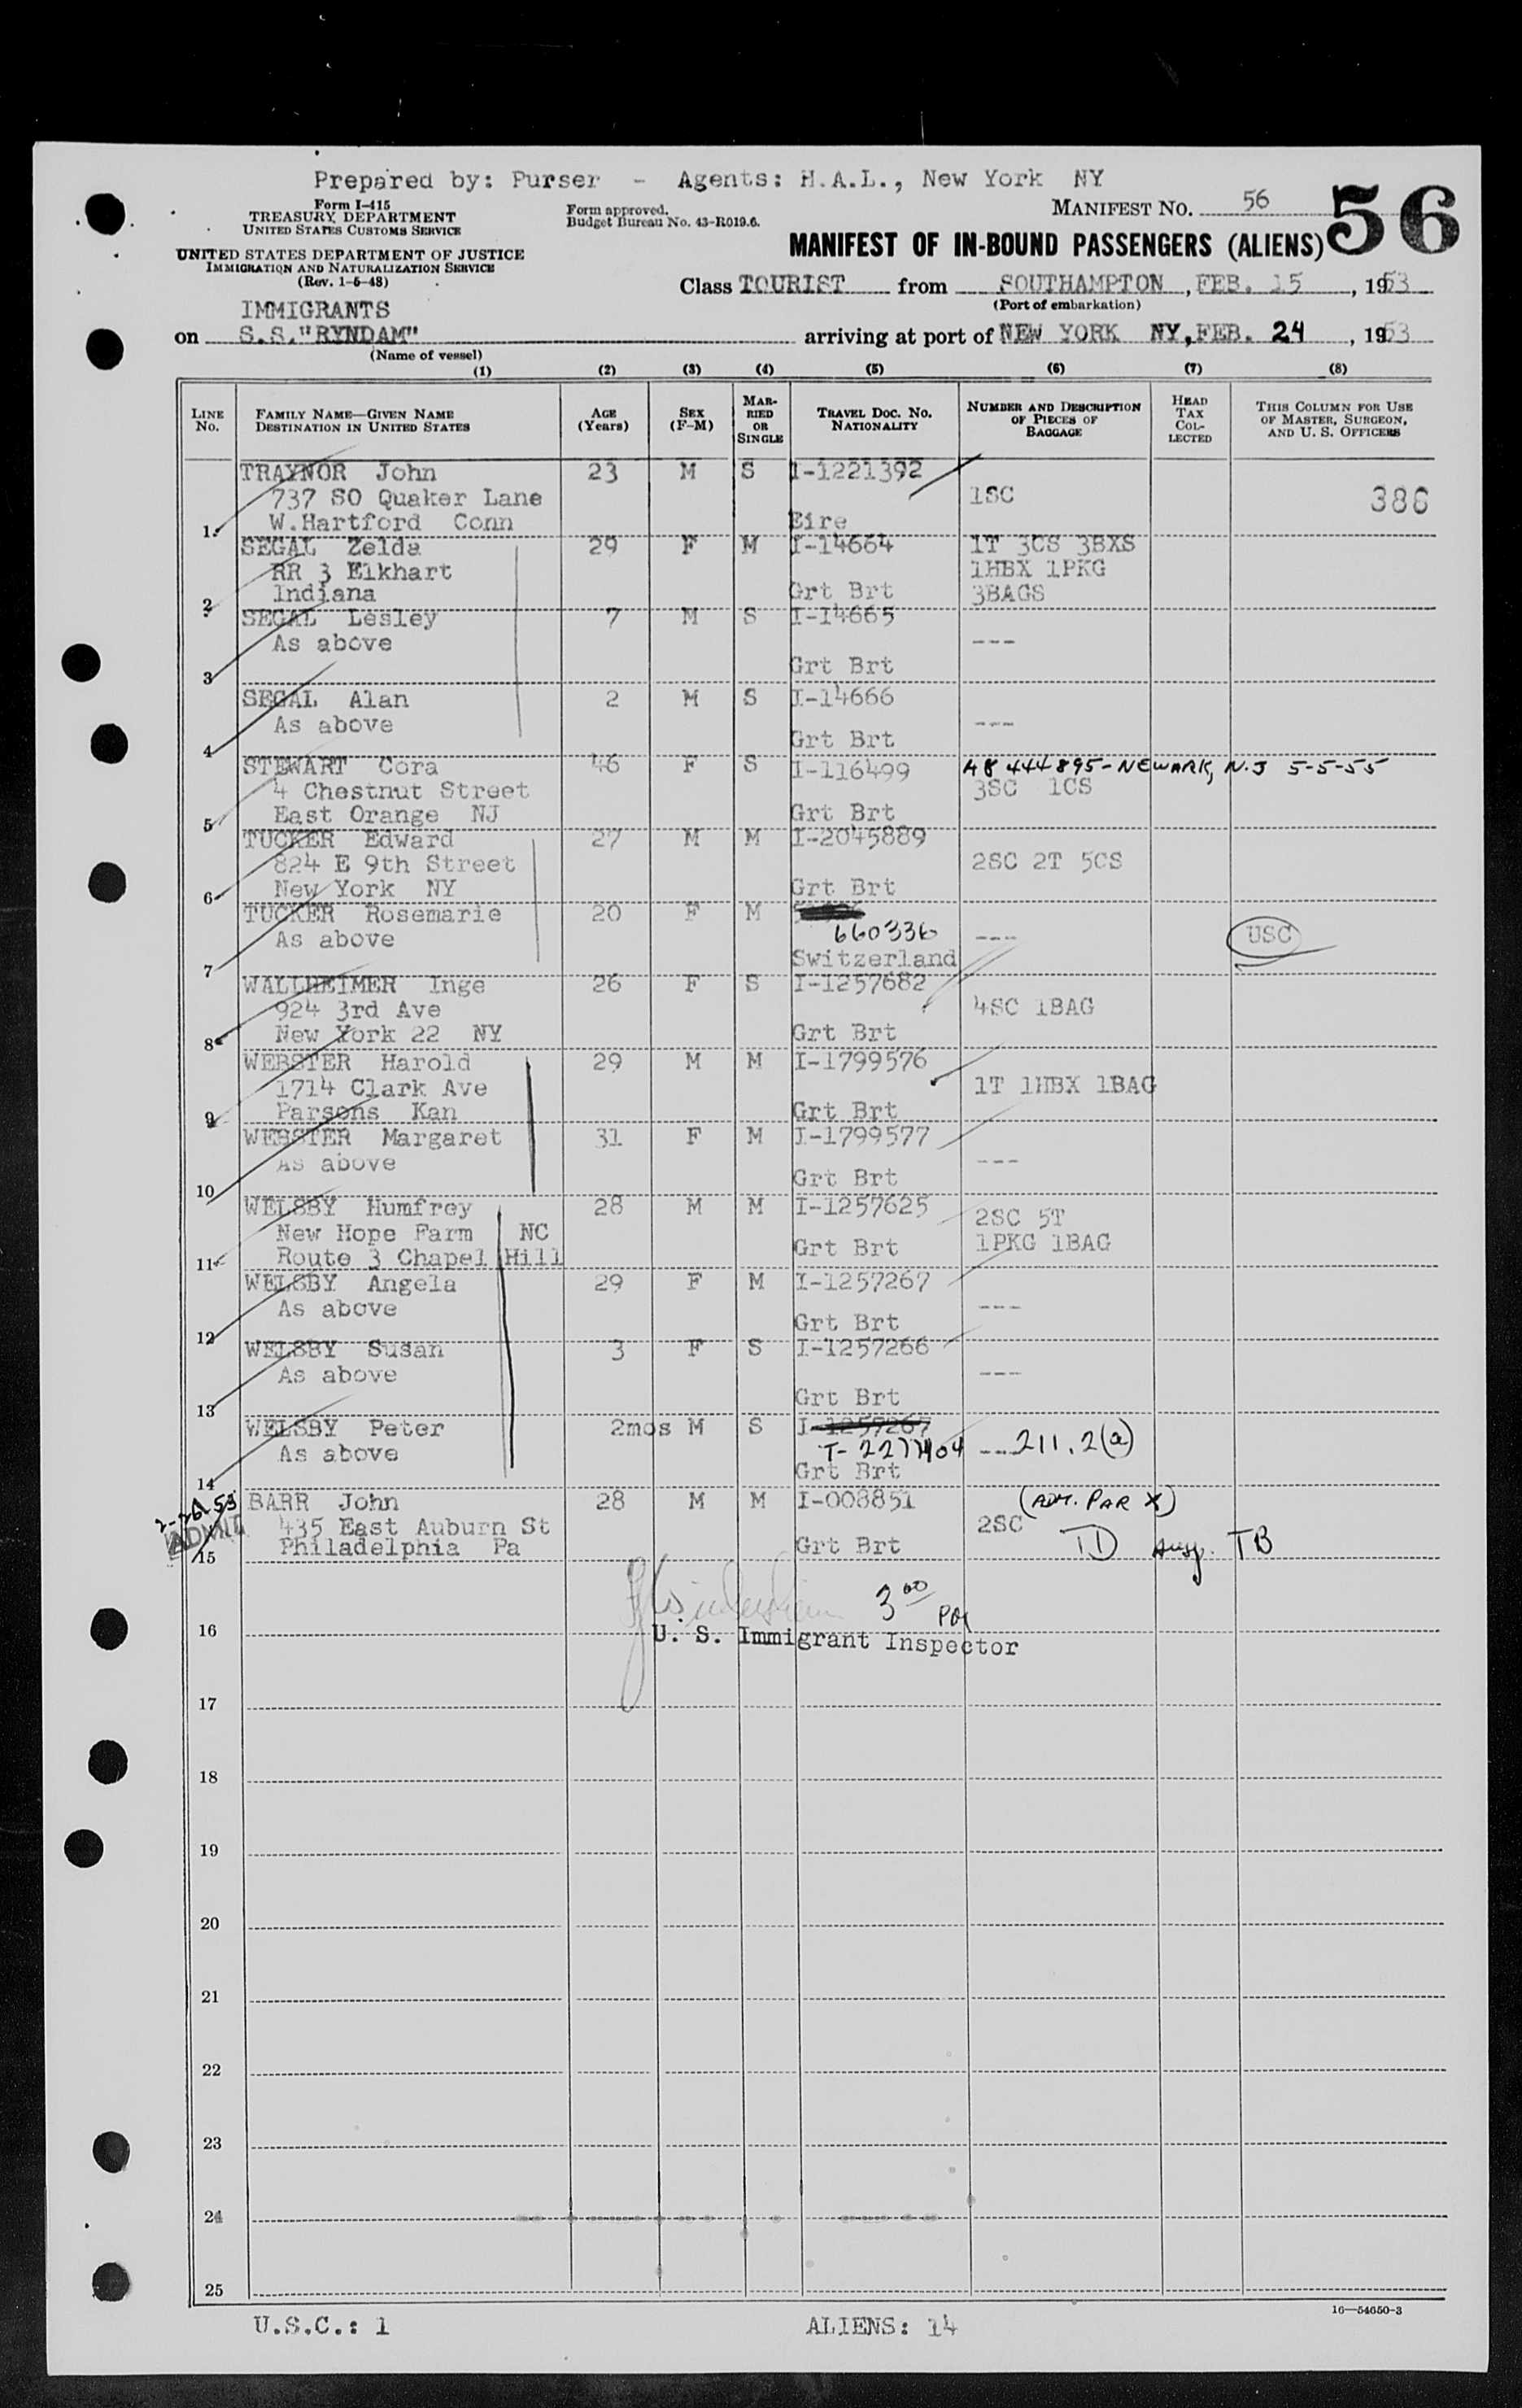 Prepared by: Purser - Agents: H.A.L., New York NY
Form I-415
TREASURY DEPARTMENT
UNITED STATES CUSTOMS SERVICE
Form approved.
Budget Bureau No. 43-R019.6.
MANIFEST No. 56
56
UNITED STATES DEPARTMENT OF JUSTICE
IMMIGRATION AND NATURALIZATION SERVICE
(Rev. 1-5-48)
MANIFEST OF IN-BOUND PASSENGERS (ALIENS)
Class TOURIST from SOUTHAMPTON, FEB. 15, 1953
(Port of embarkation)
IMMIGRANTS
on S.S."RYNDAM" arriving at port of NEW YORK NY, FEB. 24, 1953
(Name of vessel)
(1) (2) (3) (4) (5) (6) (7) (8)
LINE No. FAMILY NAME—GIVEN NAME DESTINATION IN UNITED STATES AGE (Years) SEX (F-M) MARRIED OR SINGLE TRAVEL DOC. NO. NATIONALITY NUMBER AND DESCRIPTION OF PIECES OF BAGGAGE HEAD TAX COLLECTED THIS COLUMN FOR USE OF MASTER, SURGEON, AND U. S. OFFICERS
TRAYNOR John 23 M S I-1221392
737 SO Quaker Lane 1SC 386
1 W.Hartford Conn Eire
SEGAL Zelda 29 F M I-14664 1T 3CS 3BXS
RR 3 Elkhart 1HBX 1PKG
2 Indiana Grt Brt 3BAGS
SEGAL Lesley 7 M S I-14665
As above ---
3 Grt Brt
SEGAL Alan 2 M S I-14666
As above ---
4 Grt Brt
STEWART Cora 46 F S I-116499 A8 444895-NEWARK, N.J 5-5-55
4 Chestnut Street 3SC 1CS
5 East Orange NJ Grt Brt
TUCKER Edward 27 M M I-2045889
824 E 9th Street 2SC 2T 5CS
6 New York NY Grt Brt
TUCKER Rosemarie 20 F M
As above 660336 --- USC
7 Switzerland
WALLHEIMER Inge 26 F S I-1257682
924 3rd Ave 4SC 1BAG
8 New York 22 NY Grt Brt
WEBSTER Harold 29 M M I-1799576
1714 Clark Ave 1T 1HBX 1BAG
9 Parsons Kan Grt Brt
WEBSTER Margaret 31 F M I-1799577
As above ---
10 Grt Brt
WELSBY Humfrey 28 M M I-1257625 2SC 5T
New Hope Farm NC
11 Route 3 Chapel Hill Grt Brt 1PKG 1BAG
WELSBY Angela 29 F M I-1257267
As above ---
12 Grt Brt
WELSBY Susan 3 F S I-1257266
As above ---
13 Grt Brt
WELSBY Peter 2mos M S I-1257267
As above --- 211.2(a)
14 Grt Brt
BARR John 28 M M I-008851 (ADM. PAR X)
ADMIT 435 East Auburn St 2SC TD susp. TB
15 Philadelphia Pa Grt Brt
3 00
16 U. S. Immigrant Inspector
17
18
19
20
21
22
23
24
25
16—54650-3
U.S.C.: 1 ALIENS: 14